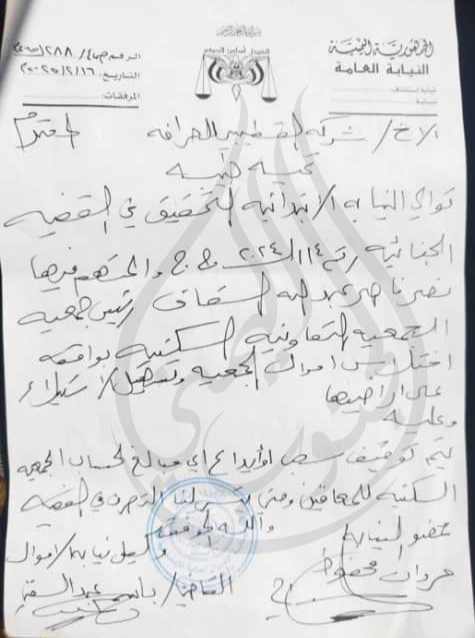 الجمهورية اليمنية
النيابة العامة
نيابة استئناف:
نيابة:
العدل أساس الحكم
الرقم: ٢٨٨
التاريخ: ٢٠٢٥/٢/١٦
المرفقات:
الاخ / شركة القطيبي للصرافة المحترم
تحية طيبة
توالي النيابة الابتدائية التحقيق في القضية
الجنائية رقم ١١٤ لسنة ٢٠٢٤ ج ج والمتهم فيها
نصر ناصر عبدالله السقاف رئيس جمعية
الجمعية التعاونية السكنية بواقعة
اختلاس اموال الجمعية وتسهيل / ستيلاء
على اراضيها
وعليه
يتم توقيف سحب او ايداع اي مبالغ لحساب الجمعية
السكنية للمعاقين وحتى يتسنى لنا التصرف في القضية
والله الموفق
عضو النيابة
مروان محفوظ
وكيل نيابة / اموال
القاضي / باسم عبد